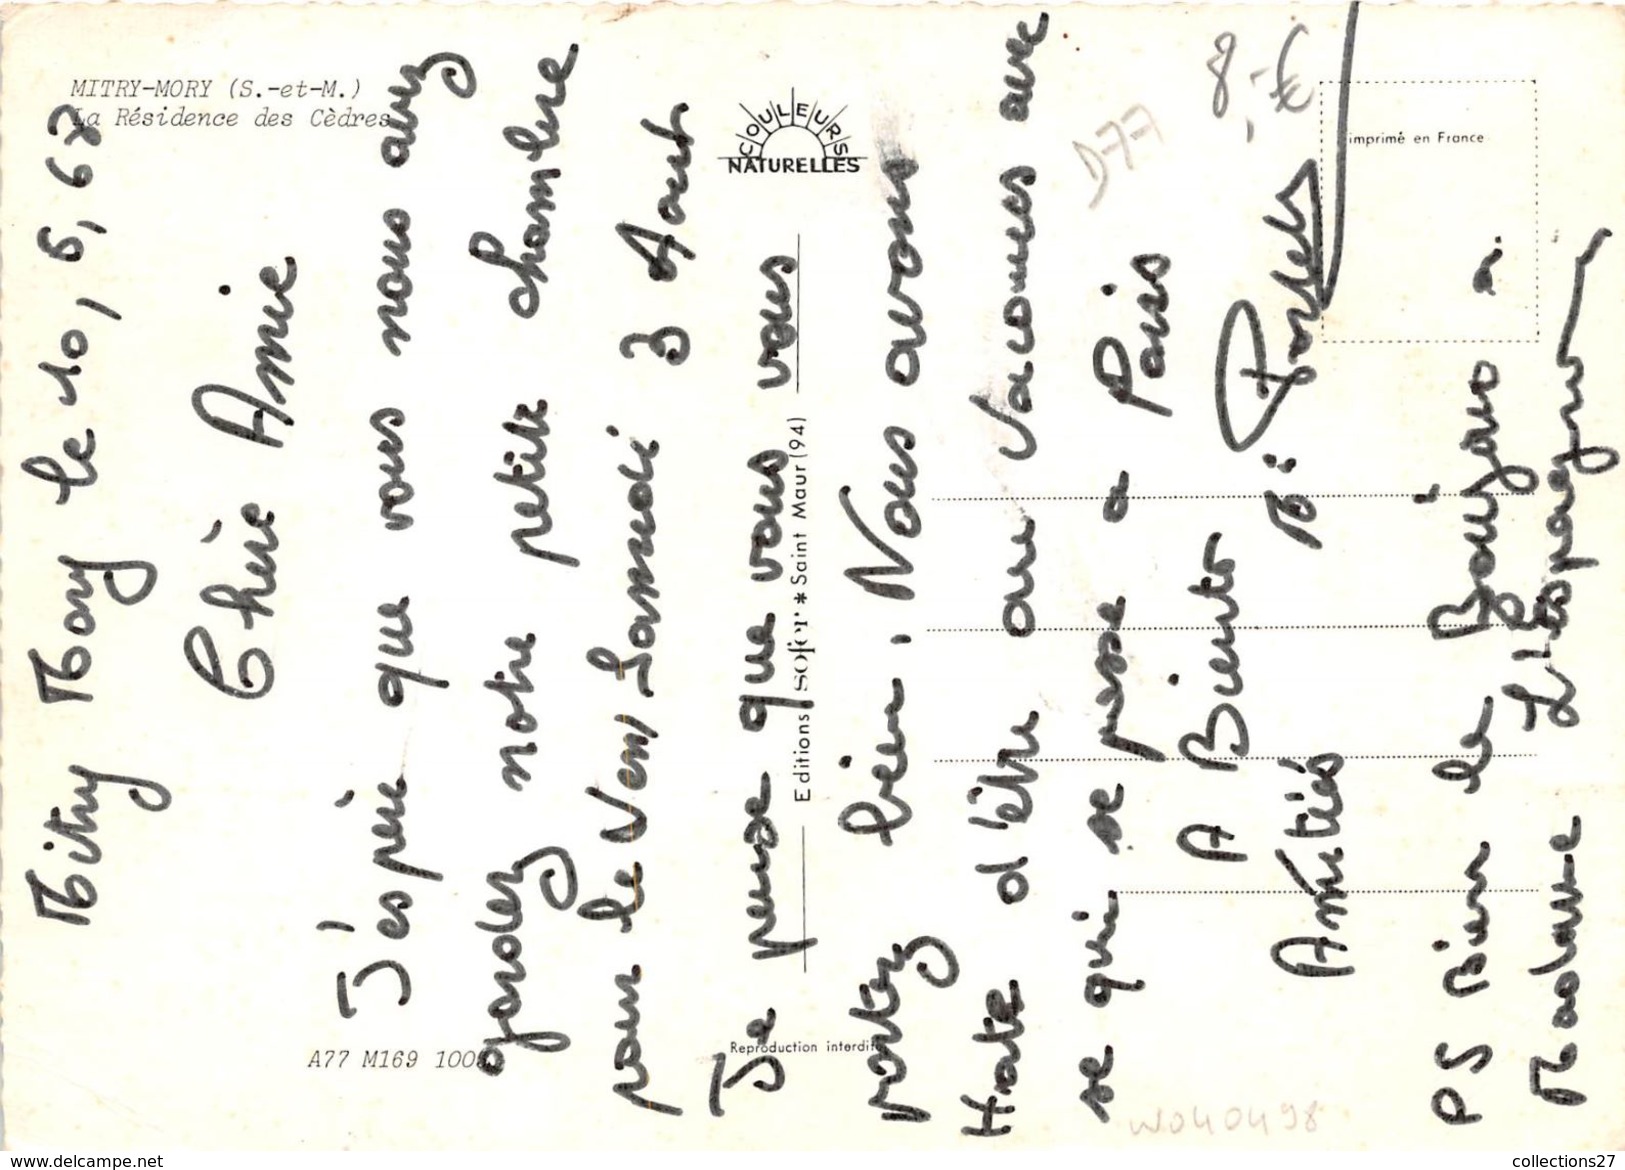 MITRY-MORY (S.-et-M.)
La Résidence des Cèdres
COULEURS
NATURELLES
imprimé en France
D77
8,-€
Mitry Mory le 10, 6, 67
Chère Amie
J'espère que vous nous avez
gardez notre petite chambre
pour le Ven Samedi 3 Aout
Je pense que vous vous
portez bien. Nous avons
Hate d'être aux Vacances avec
se qui se passe a Paris
A Biento
Amitiés Mr
PS Bien le Bonjour a
Madame
Editions sofer * Saint Maur (94)
Reproduction interdite
A77 M169 100
W040498
www.delcampe.net
collections27